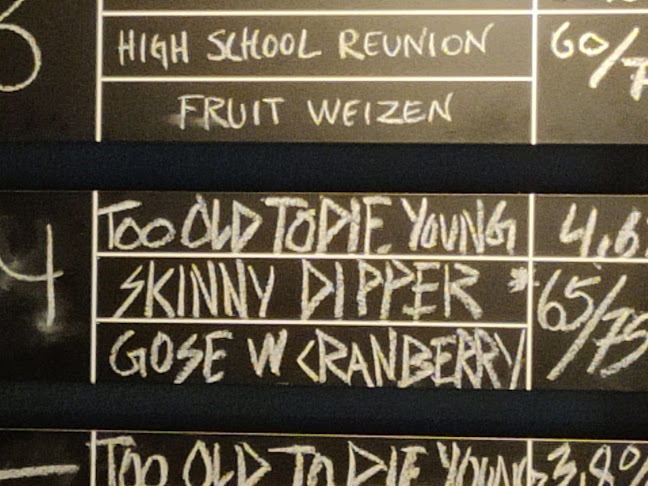 HIGH SCHOOL REUNION 60/7
FRUIT WEIZEN
4 TOO OLD TO DIE YOUNG 4,6
SKINNY DIPPER * 65/75
GOSE W CRANBERRY
TOO OLD TO DIE YOUNG 3,8%